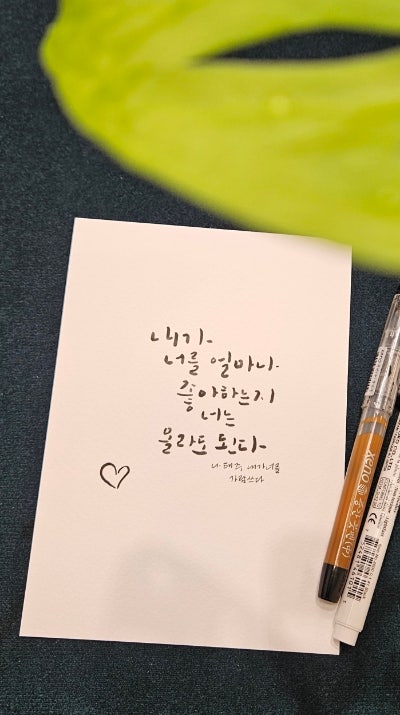 내가
너를 얼마나
좋아하는지
너는
몰라도 된다
나태주, 내가 너를
가람쓰다
XENO
CE